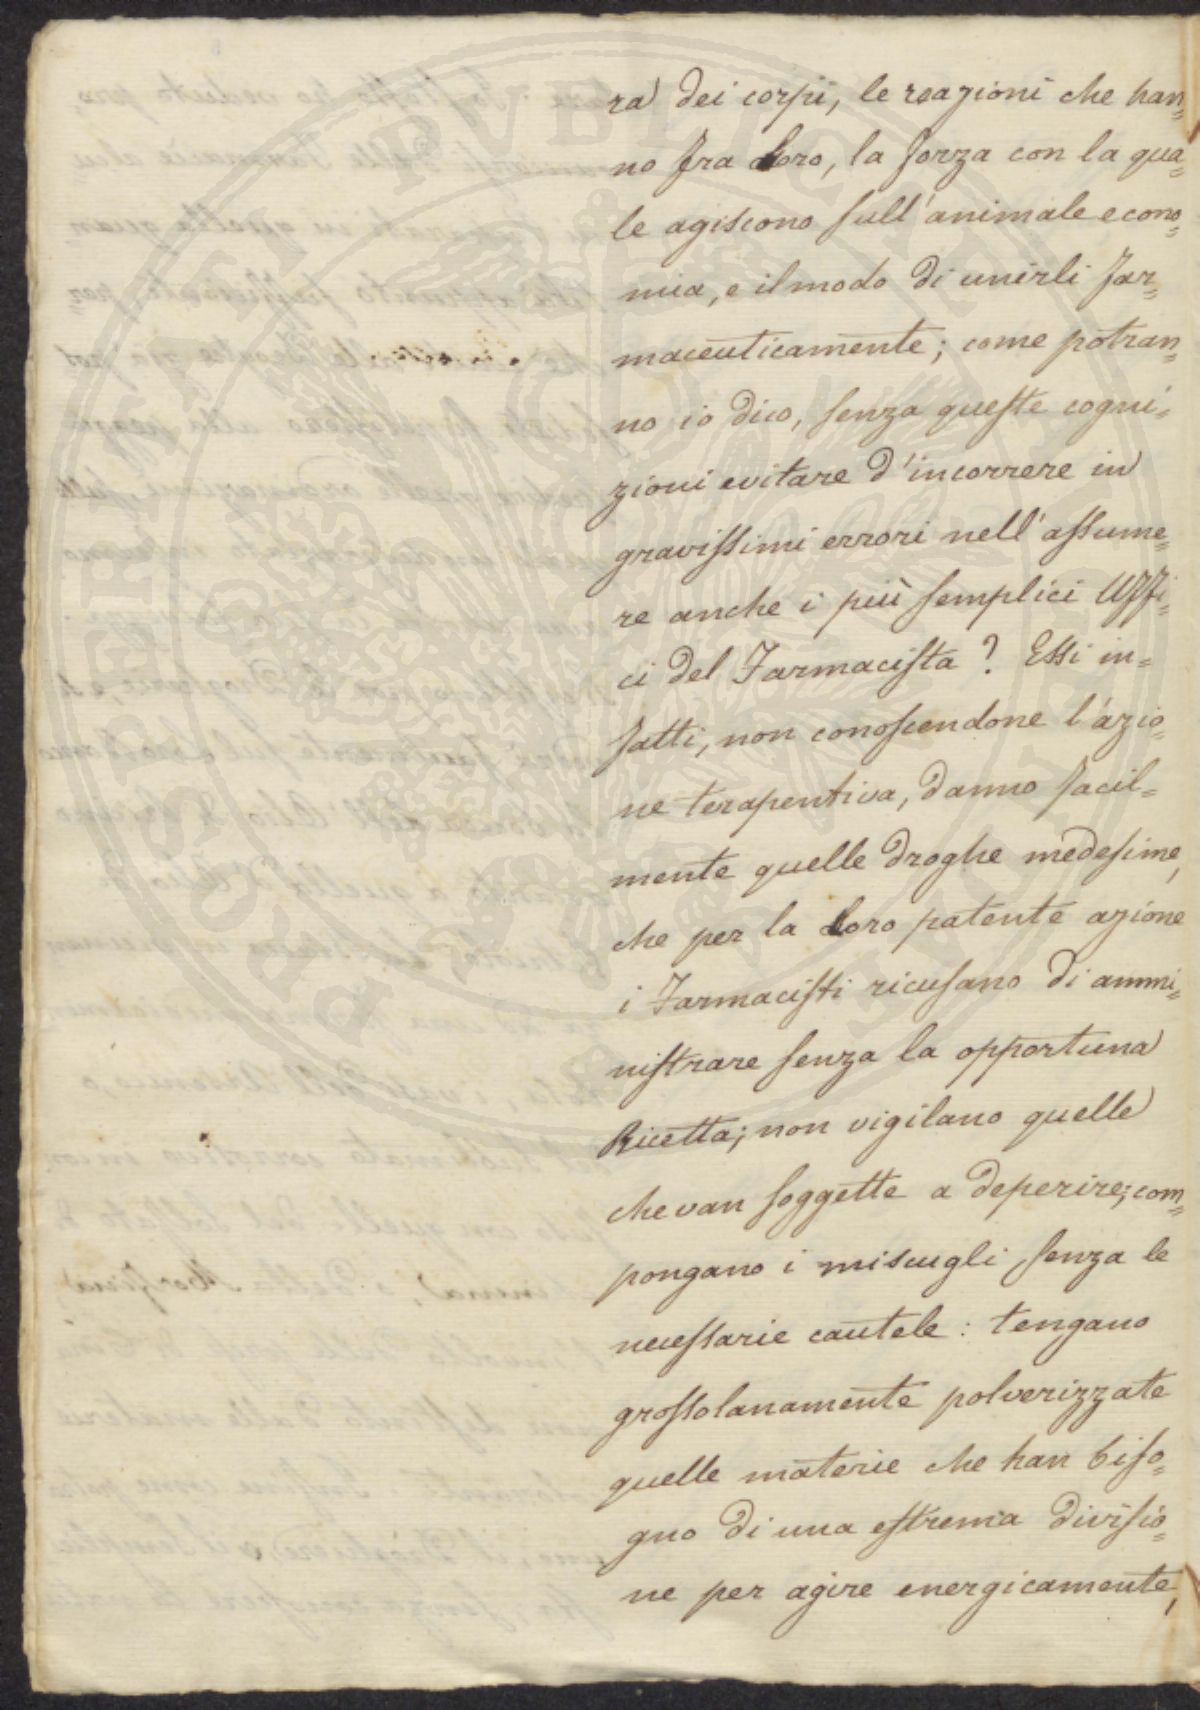 ra dei corpi, le reazioni che han=
no fra Loro, la forza con la qua=
le agiscono sull'animale econo=
mia, e il modo di unirli far=
maceuticamente; come potran=
no io dico, senza queste cogni=
zioni evitare d'incorrere in
gravissimi errori nell'assume=
re anche i più semplici Uffi=
ci del Farmacista? Essi in=
fatti, non conoscendone l'azio=
ne terapentiva, danno facil=
mente quelle droghe medesime,
che per la Loro patente azione
i Farmacisti ricusano di ammi=
nistrare senza la opportuna
Ricetta; non vigilano quelle
che van soggette a deperire; com=
pongano i miscugli senza le
necessarie cautele: tengano
grossolanamente polverizzate
quelle materie che han biso=
gno di una estrema divisio=
ne per agire energicamente,